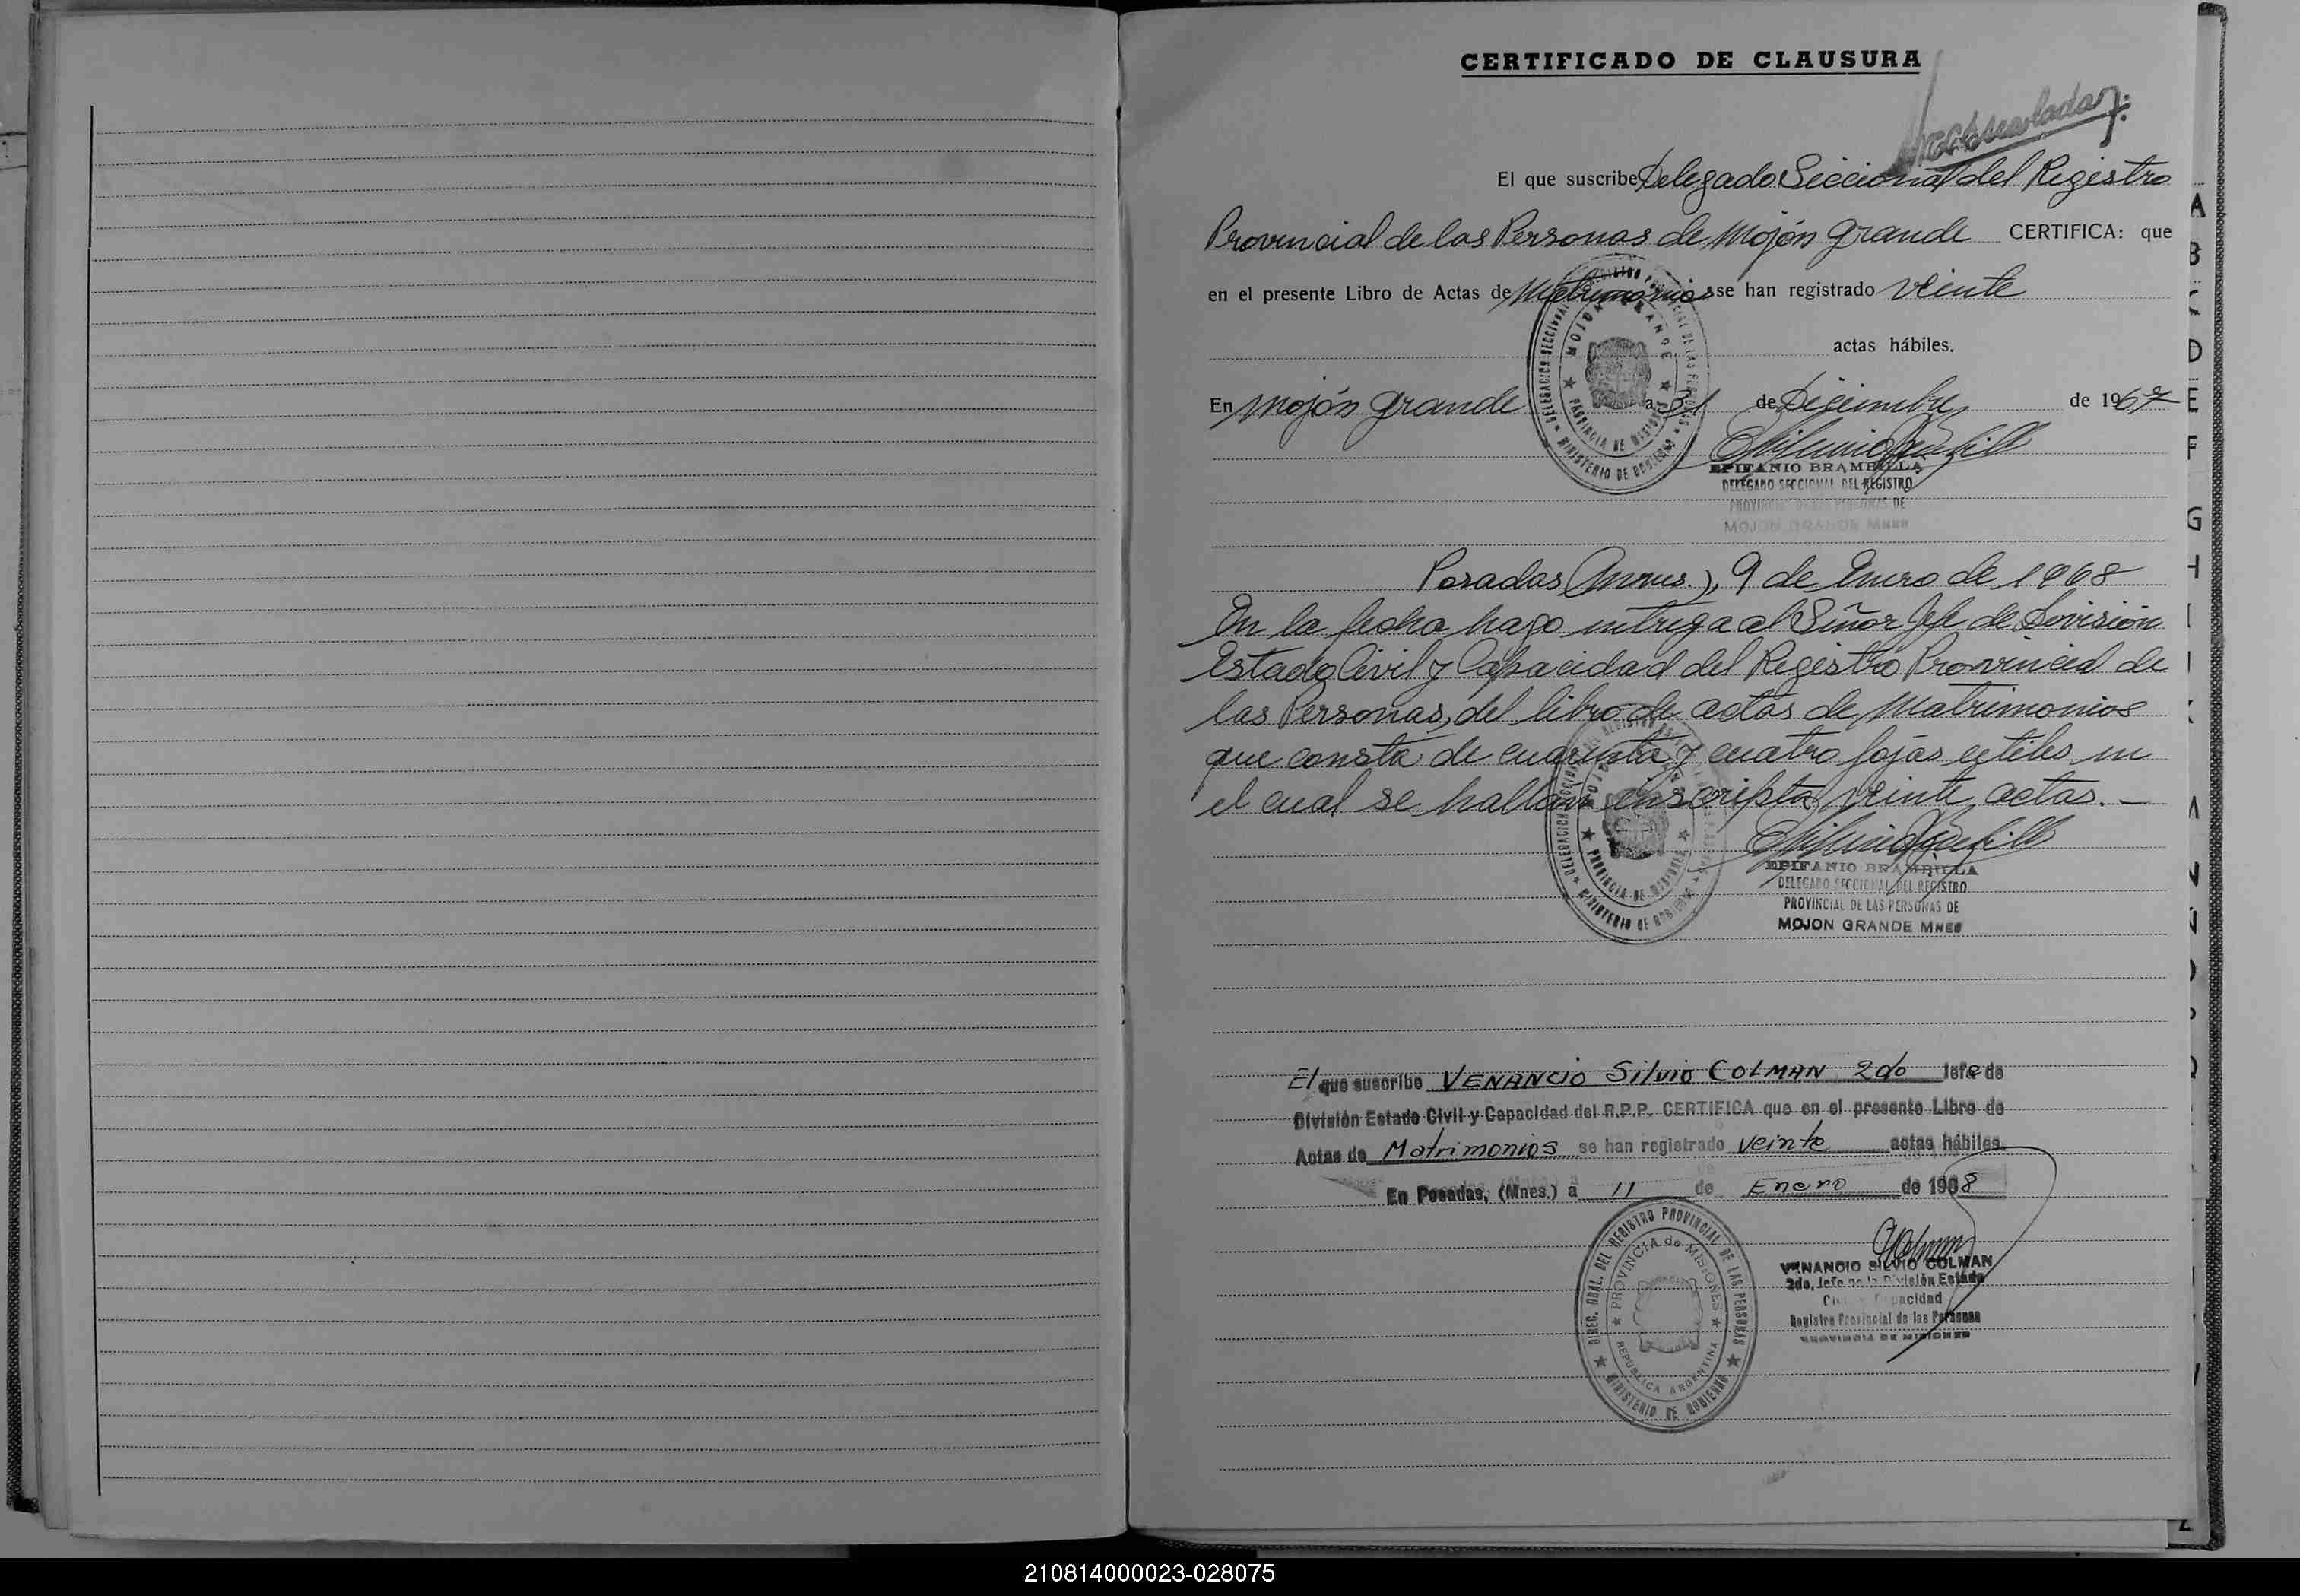 CERTIFICADO DE CLAUSURA
El que suscribe Delegado Seccional del Registro
Provincial de las Personas de Mojón Grande CERTIFICA: que
en el presente Libro de Actas de Matrimonios se han registrado veinte
actas hábiles.
En Mojón Grande a 31 de Diciembre de 1967
EPIFANIO BRAMBILLA
DELEGADO SECCIONAL DEL REGISTRO
PROVINCIAL DE LAS PERSONAS DE
MOJON GRANDE MNES
DELEGACION SECCIONAL DEL REGISTRO PROVINCIAL DE LAS PERSONAS
MOJON GRANDE
PROVINCIA DE MISIONES
MINISTERIO DE GOBIERNO
Posadas (Mnes.), 9 de Enero de 1968
En la fecha hago entrega al Señor Jefe de División
Estado Civil y Capacidad del Registro Provincial de
las Personas, del libro de actas de Matrimonios
que consta de cuarenta y cuatro fojas útiles en
el cual se hallan inscriptas veinte actas. —
EPIFANIO BRAMBILLA
DELEGADO SECCIONAL DEL REGISTRO
PROVINCIAL DE LAS PERSONAS DE
MOJON GRANDE MNES
PROVINCIA DE MISIONES
MINISTERIO DE GOBIERNO
El que suscribe VENANCIO Silvio COLMAN 2do Jefe de
División Estado Civil y Capacidad del R.P.P. CERTIFICA que en el presente Libro de
Actas de Matrimonios se han registrado veinte actas hábiles.
En Posadas, (Mnes.) a 11 de Enero de 1968
VENANCIO SILVIO COLMAN
2do. Jefe de la División Estado
Civil y Capacidad
Registro Provincial de las Personas
PROVINCIA DE MISIONES
DIREC. GRAL. DEL REGISTRO PROVINCIAL DE LAS PERSONAS
PROVINCIA de MISIONES
REPUBLICA ARGENTINA
MINISTERIO DE GOBIERNO
A
B
C
D
E
F
G
H
210814000023-028075